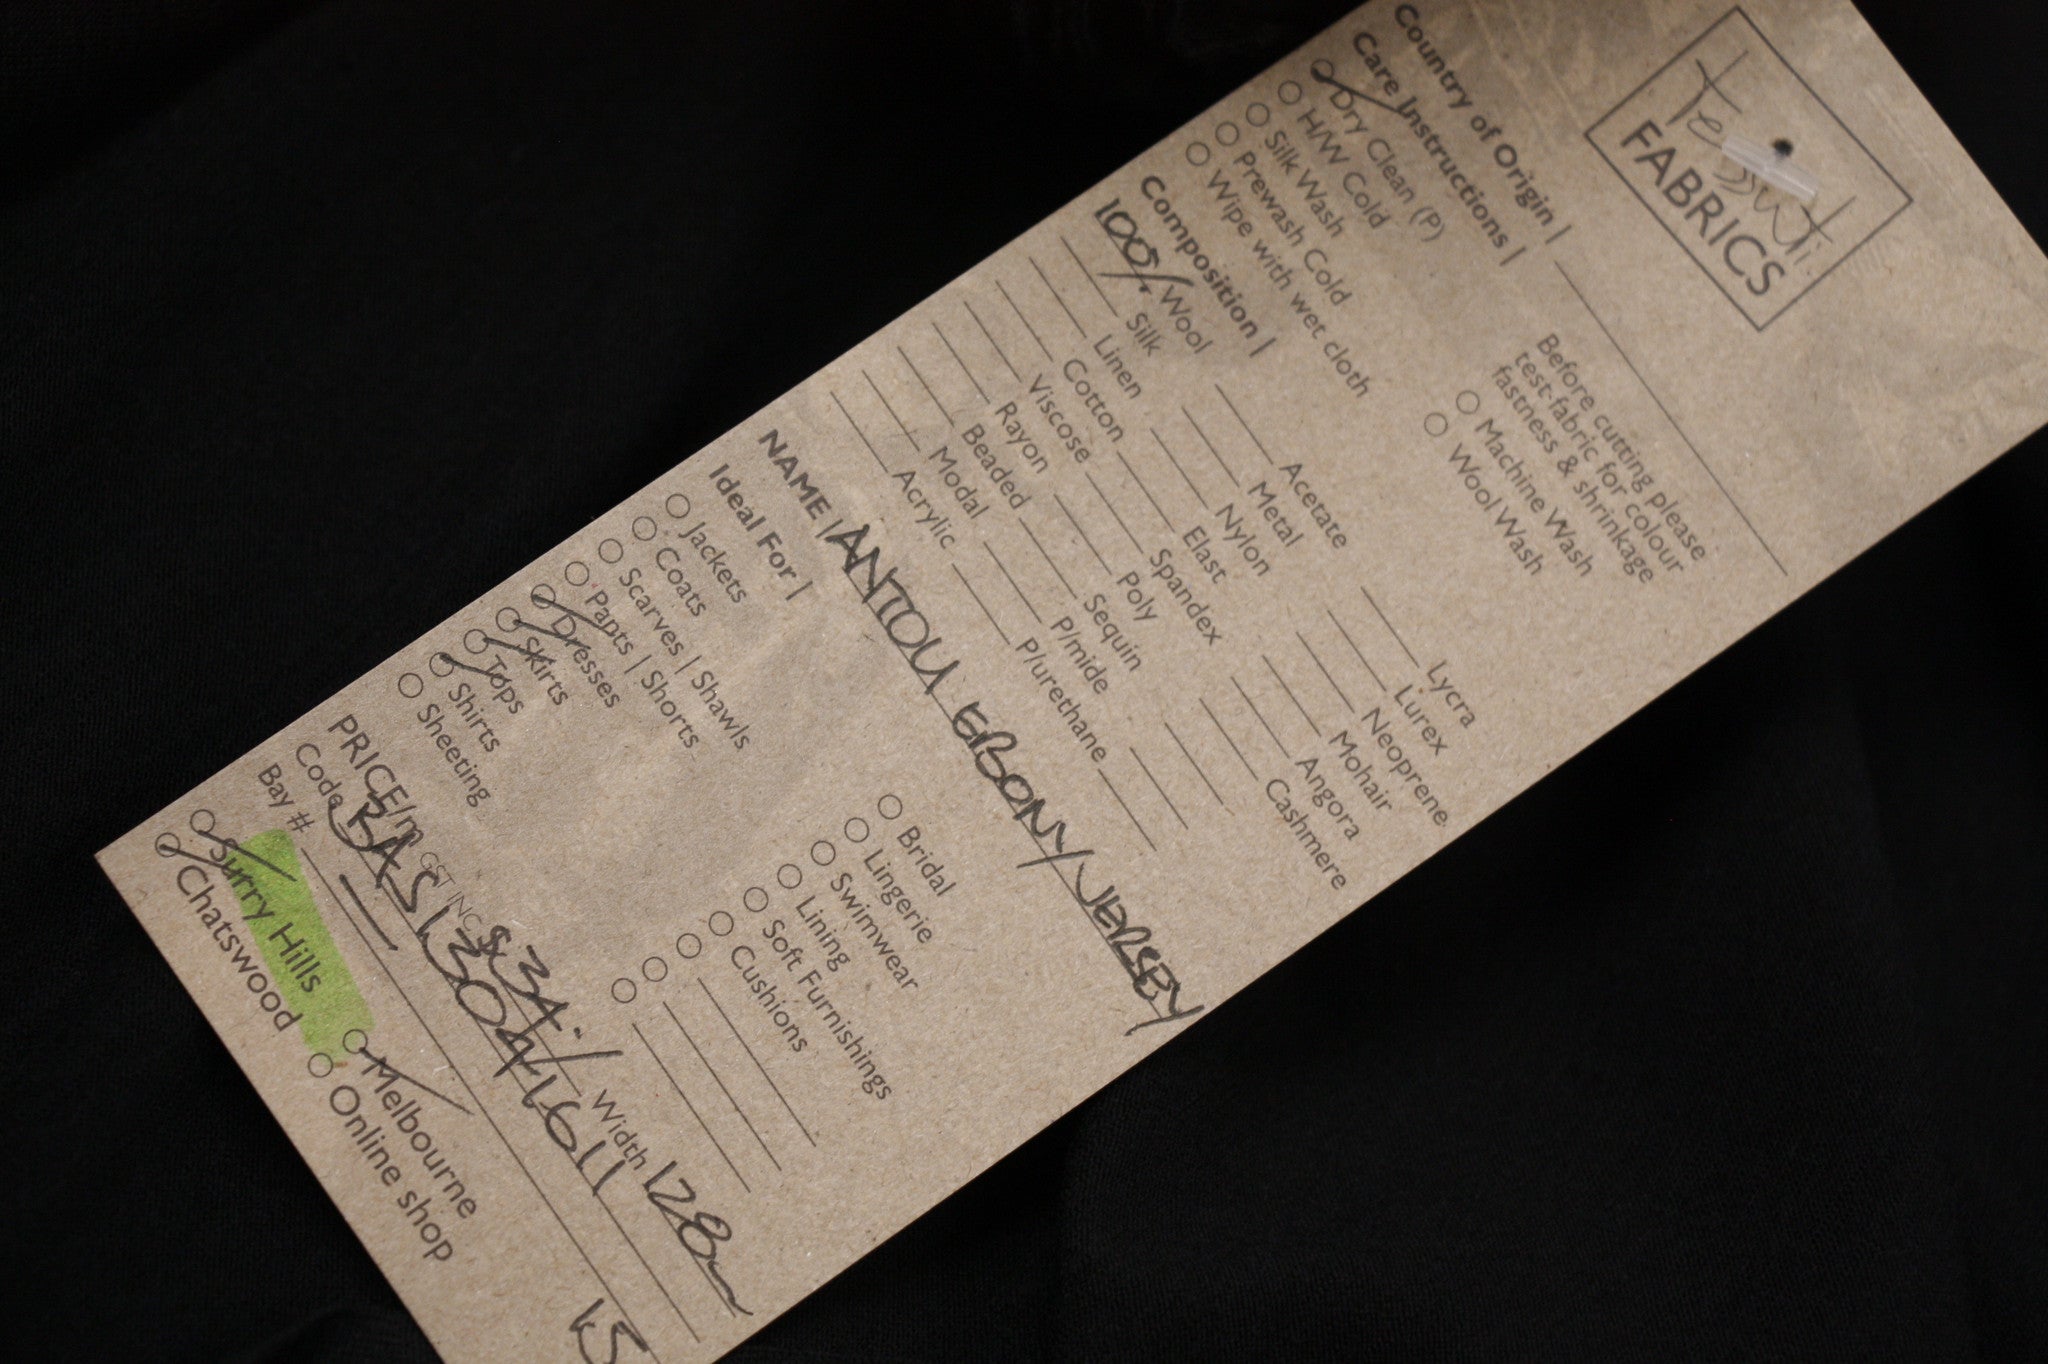 Tessuti
FABRICS
Country of Origin |
Care Instructions |
Dry Clean (P)
H/W Cold
Silk Wash
Prewash Cold
Wipe with wet cloth
Before cutting please
test-fabric for colour
fastness & shrinkage
Machine Wash
Wool Wash
Composition |
100% Wool
Silk
Linen
Cotton
Viscose
Rayon
Beaded
Modal
Acrylic
Acetate
Metal
Nylon
Elast
Spandex
Poly
Sequin
P/mide
P/urethane
Lycra
Lurex
Neoprene
Mohair
Angora
Cashmere
NAME | ANTOU EBONY/JERSEY
Ideal For |
Jackets
Coats
Scarves | Shawls
Pants | Shorts
Dresses
Skirts
Tops
Shirts
Sheeting
Bridal
Lingerie
Swimwear
Lining
Soft Furnishings
Cushions
PRICE/m GST INC $34.- Width 128
Code
Bay #
Surry Hills
Chatswood
Melbourne
Online shop